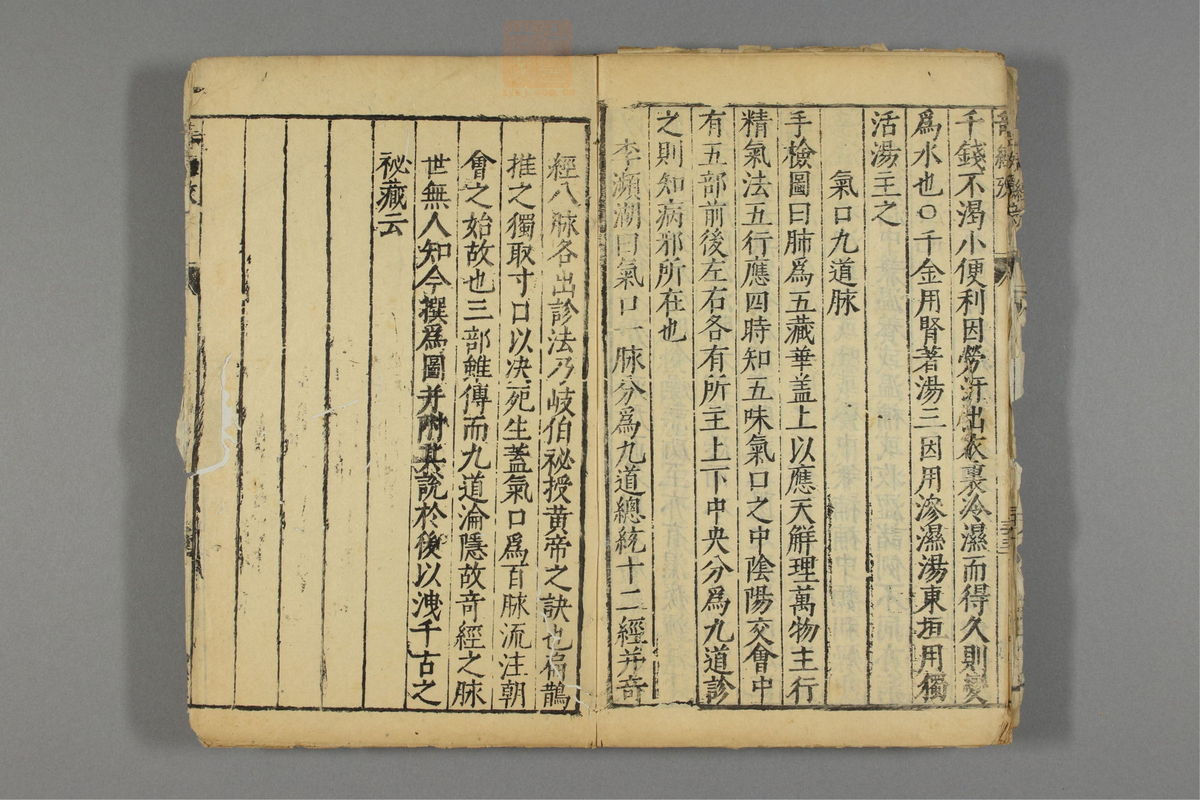 千錢不渴小便利因勞汗出衣裏冷濕而得久則變
爲水也○千金用腎著湯三因用滲濕湯東垣用獨
活湯主之
氣口九道脉
手檢圖曰肺爲五藏華盖上以應天觧理萬物主行
精氣法五行應四時知五味氣口之中陰陽交會中
有五部前後左右各有所主上下中央分爲九道診
之則知病邪所在也
李瀕湖曰氣口一脉分爲九道總統十二經并奇
經八脉各出診法乃岐伯祕授黄帝之訣也扁鵲
推之獨取寸口以决死生蓋氣口爲百脉流注朝
會之始故也三部雖傳而九道淪隱故奇經之脉
世無人知今撰爲圖并附其說於後以洩千古之
祕藏云